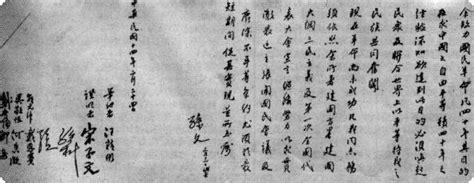 余致力國民革命凡四十年其目的
在求中國之自由平等積四十年之
經驗深知欲達到此目的必須喚起
民衆及聯合世界上以平等待我之
民族共同奮鬥
現在革命尚未成功凡我同志務
須依照余所著建國方略建國
大綱三民主義及第一次全國代
表大會宣言繼續努力以求貫
徹最近主張開國民會議及
廢除不平等條約尤須於最
短期間促其實現是所至囑
孫文
中華民國十四年二月二十四日
筆記者 汪精衛
證明者 宋子文
孫科